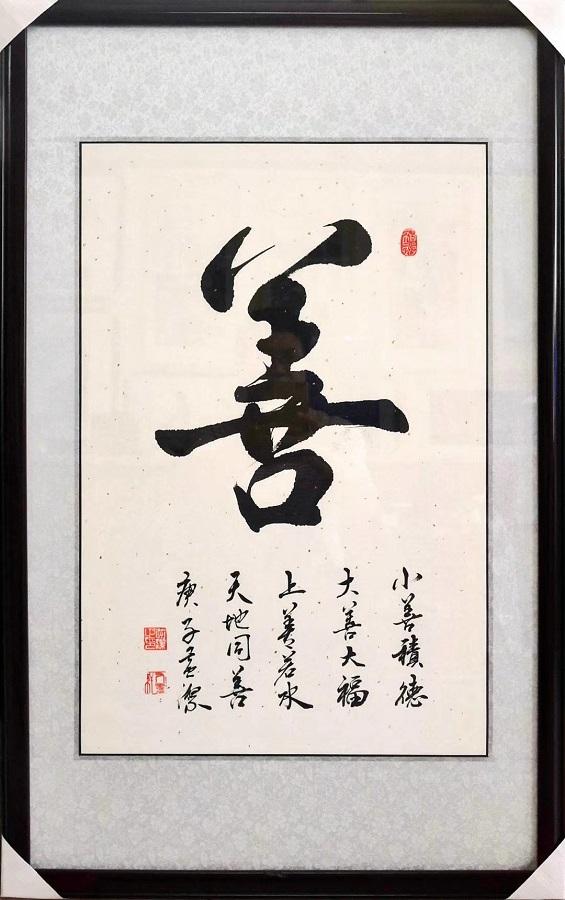 善
小善積德
大善大福
上善若水
天地同善
庚子孟潔